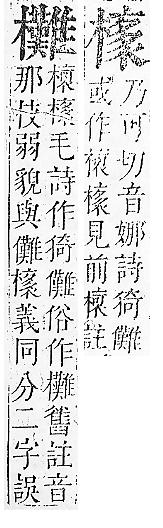 橠
乃可切音娜詩猗儺
或作橠見前註
㰙
橠毛詩作猗儺俗作㰙舊註音
那枝弱貌與儺橠義同分二字誤